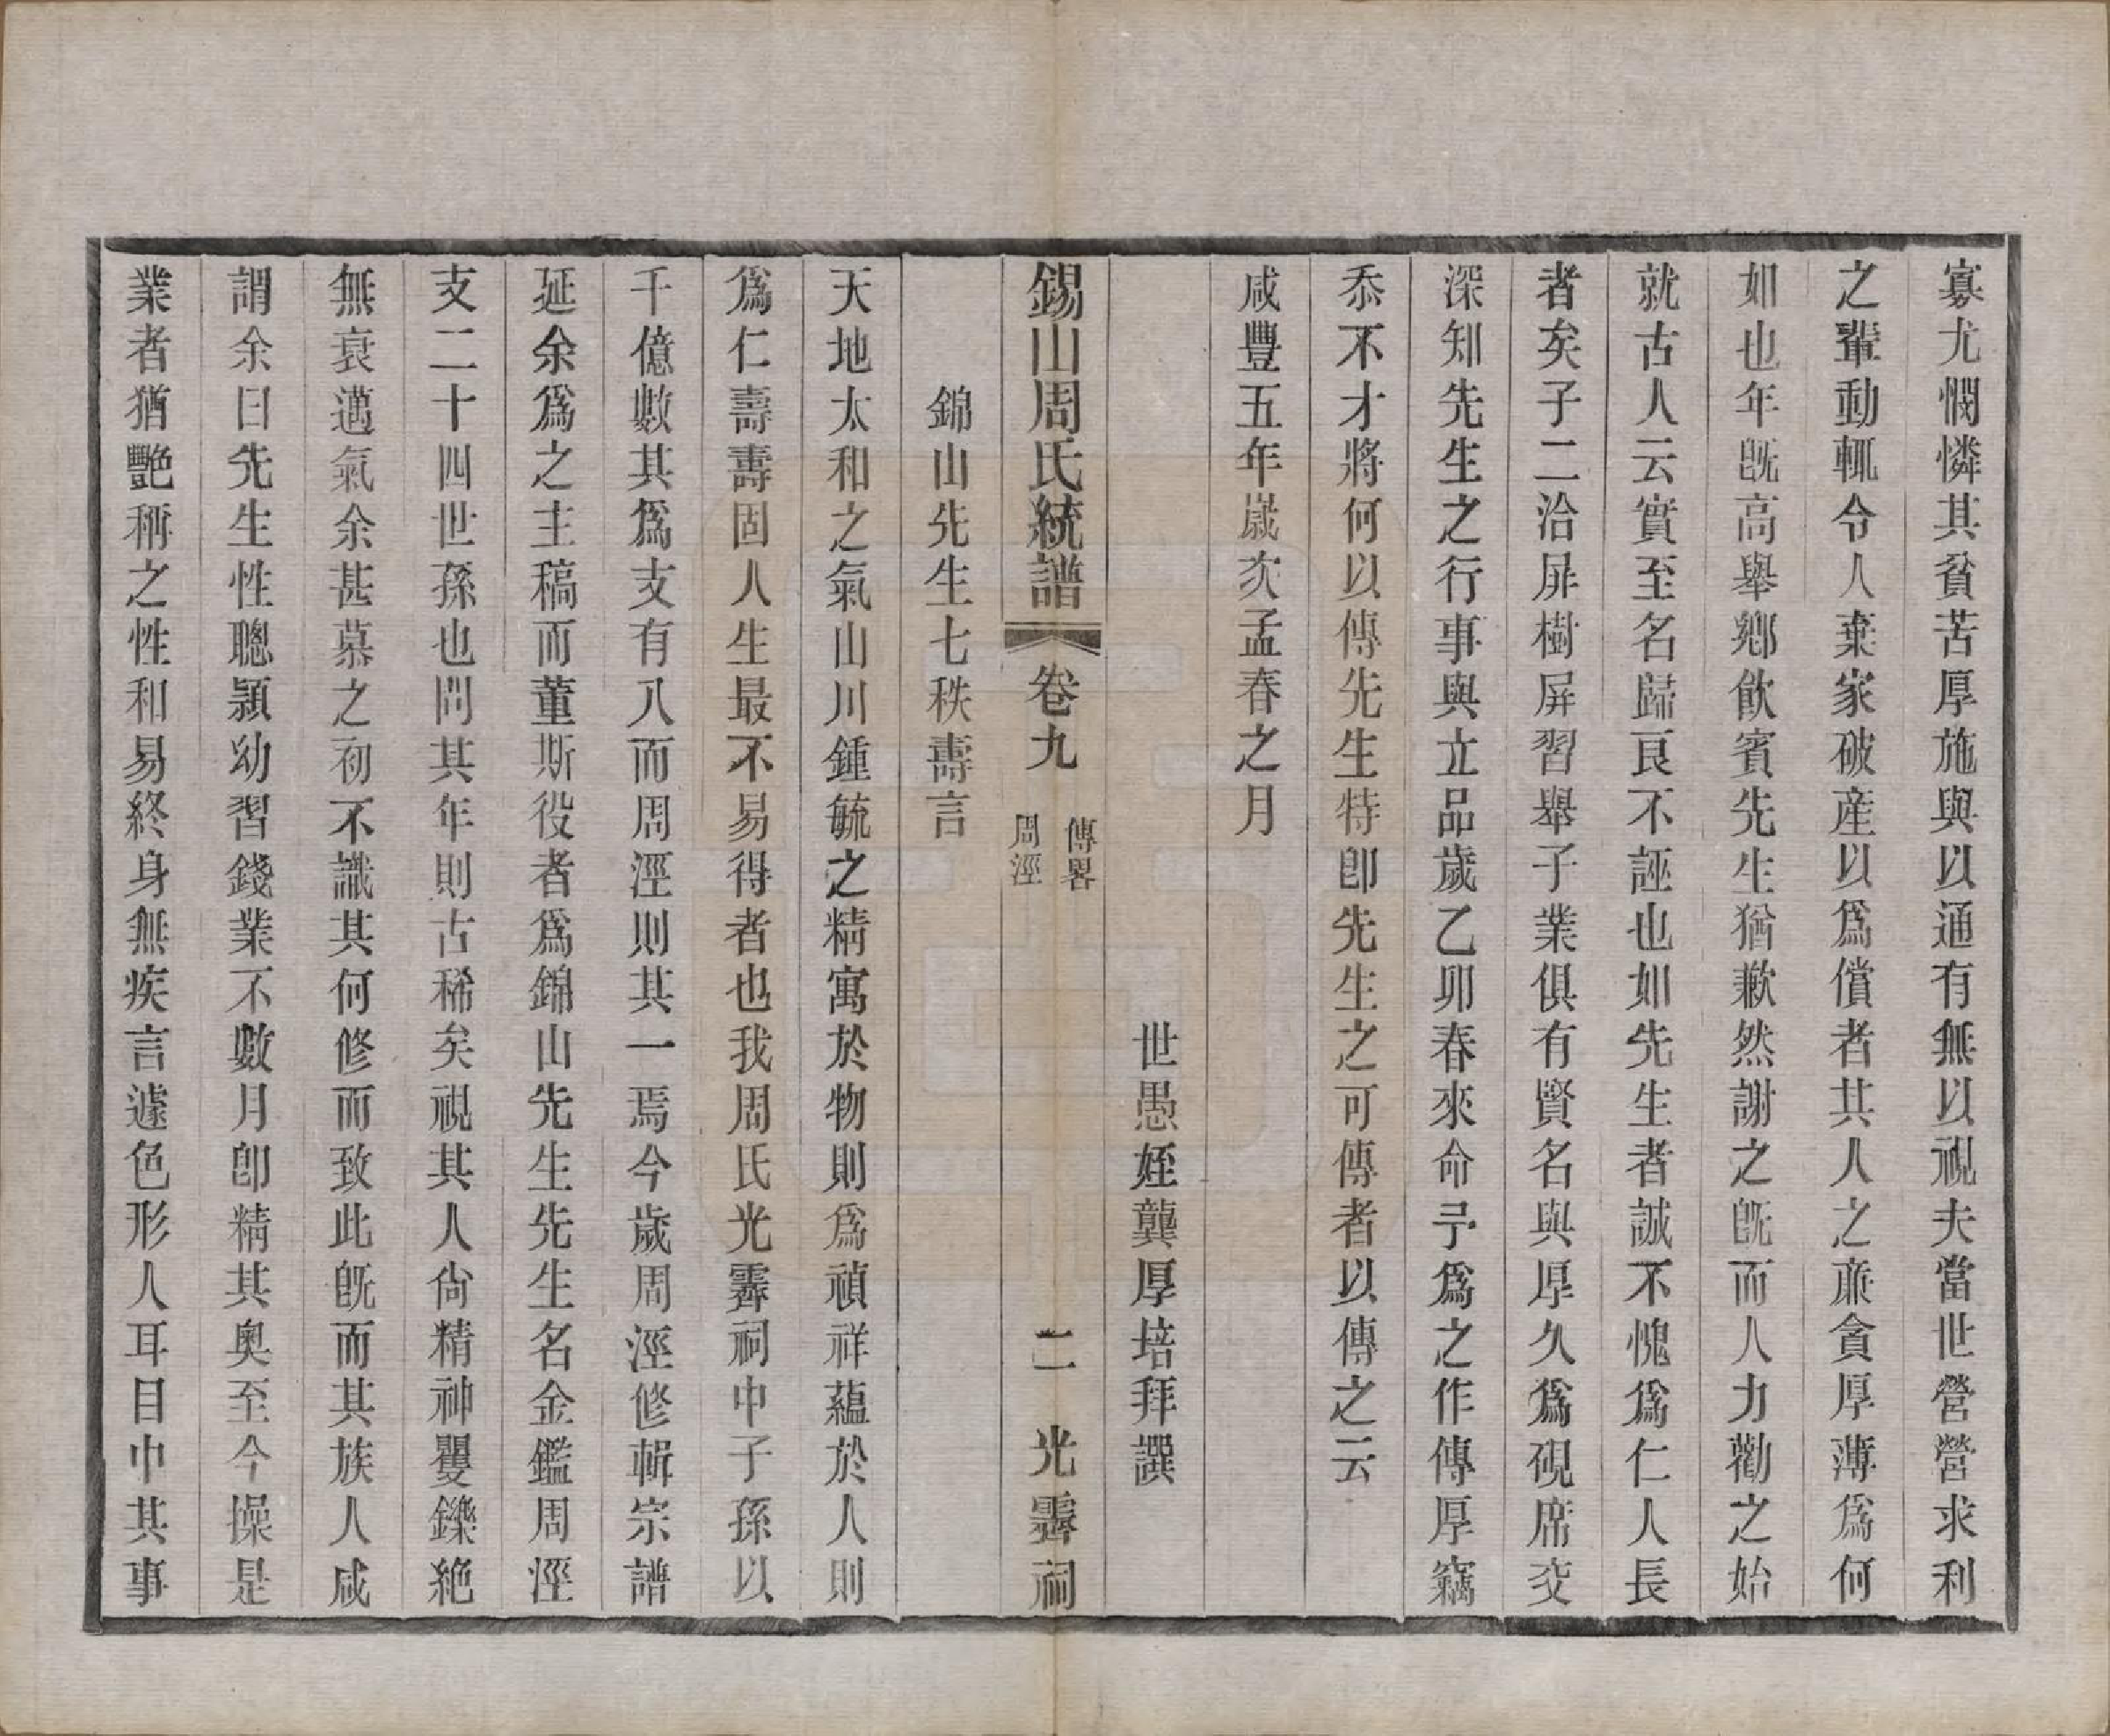 寡尤憫憐其貧苦厚施與以通有無以視夫當世營營求利
之輩動輒令人棄家破産以爲償者其人之㢘貪厚薄爲何
如也年既高舉鄕飲賓先生猶歉然謝之既而人力勸之始
就古人云實至名歸良不誣也如先生者誠不愧爲仁人長
者矣子二洽屏樹屏習舉子業俱有賢名與厚久爲硯席交
深知先生之行事與立品歲乙卯春來命予爲之作傳厚竊
忝不才將何以傳先生特卽先生之可傳者以傳之云
咸豐五年歲次孟春之月
世愚姪龔厚培拜譔
錫山周氏統譜 卷九 傳畧 周涇 二 光霽祠
錦山先生七秩壽言
天地太和之氣山川鍾毓之精寓於物則爲禎祥蘊於人則
爲仁壽壽固人生最不易得者也我周氏光霽祠中子孫以
千億數其爲支有八而周涇則其一焉今歲周涇修輯宗譜
延余爲之主稿而董斯役者爲錦山先生先生名金鑑周涇
支二十四世孫也問其年則古稀矣視其人尙精神矍鑠絶
無衰邁氣余甚慕之初不識其何修而致此既而其族人咸
謂余曰先生性聰頴幼習錢業不數月卽精其奥至今操是
業者猶艷稱之性和易終身無疾言遽色形人耳目中其事